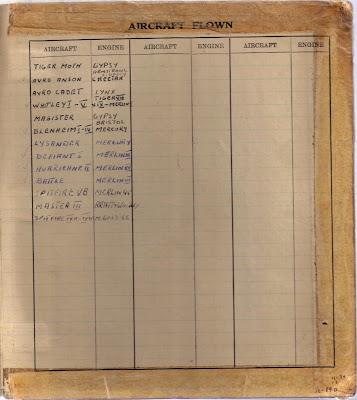 AIRCRAFT FLOWN
AIRCRAFT ENGINE AIRCRAFT ENGINE AIRCRAFT ENGINE
TIGER MOTH GYPSY
AVRO ANSON CHEETAH
AVRO CADET LYNX
WHITLEY I - V TIGER VIII MERLIN
MAGISTER GYPSY
BRISTOL
BLENHEIM I-IV MERCURY
LYSANDER MERCURY
DEFIANT I MERLIN
HURRICANE II MERLIN
BATTLE MERLIN
SPITFIRE VB MERLIN
MASTER III
SPITFIRE